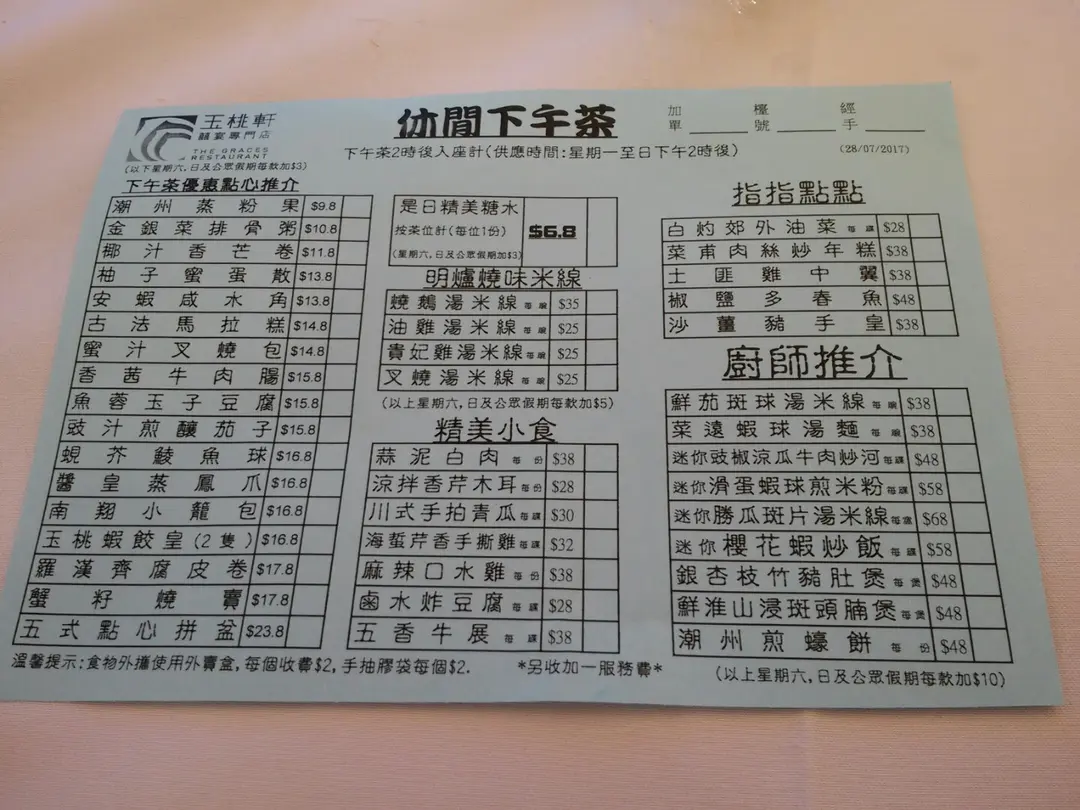 玉桃軒
囍宴專門店
THE GRACES
RESTAURANT
休閒下午茶
下午茶2時後入座計(供應時間:星期一至日下午2時後)
加單 ____ 檯號 ____ 經手 ____
(28/07/2017)
(以下星期六,日及公眾假期每款加$3)
下午茶優惠點心推介
潮州蒸粉果 $9.8
金銀菜排骨粥 $10.8
椰汁香芒卷 $11.8
柚子蜜蛋散 $13.8
安蝦咸水角 $13.8
古法馬拉糕 $14.8
蜜汁叉燒包 $14.8
香茜牛肉腸 $15.8
魚蓉玉子豆腐 $15.8
豉汁煎釀茄子 $15.8
蜆芥鯪魚球 $16.8
醬皇蒸鳳爪 $16.8
南翔小籠包 $16.8
玉桃蝦餃皇(2隻) $16.8
羅漢齊腐皮卷 $17.8
蟹籽燒賣 $17.8
五式點心拼盆 $23.8
是日精美糖水
按茶位計(每位1份) $6.8
(星期六,日及公眾假期加$3)
明爐燒味米線
燒鵝湯米線 每碗 $35
油雞湯米線 每碗 $25
貴妃雞湯米線 每碗 $25
叉燒湯米線 每碗 $25
(以上星期六,日及公眾假期每款加$5)
精美小食
蒜泥白肉 每份 $38
涼拌香芹木耳 每份 $28
川式手拍青瓜 每碟 $30
海蜇芹香手撕雞 每碟 $32
麻辣口水雞 每份 $38
鹵水炸豆腐 每碟 $28
五香牛展 每碟 $38
指指點點
白灼郊外油菜 每碟 $28
菜甫肉絲炒年糕 $38
土匪雞中翼 $38
椒鹽多春魚 $48
沙薑豬手皇 $38
廚師推介
鮮茄斑球湯米線 每碗 $38
菜遠蝦球湯麵 每碗 $38
迷你豉椒涼瓜牛肉炒河 每碟 $48
迷你滑蛋蝦球煎米粉 每碟 $58
迷你勝瓜斑片湯米線 每窩 $68
迷你櫻花蝦炒飯 每碟 $58
銀杏枝竹豬肚煲 每煲 $48
鮮淮山浸斑頭腩煲 每煲 $48
潮州煎蠔餅 每份 $48
(以上星期六,日及公眾假期每款加$10)
溫馨提示:食物外攜使用外賣盒,每個收費$2,手抽膠袋每個$2.
*另收加一服務費*